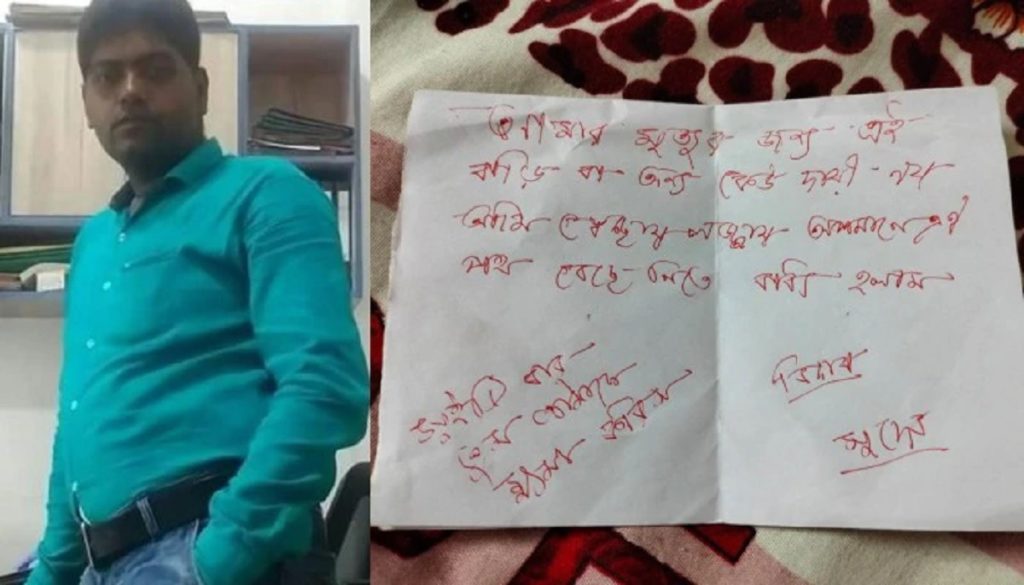 আমার মৃত্যুর জন্য এই
বাড়ি বা অন্য কেউ দায়ী নয়
আমি স্বেচ্ছায় লজ্জায় অপমানে এই
পথ বেছে নিতে বাধ্য হলাম
ক্ষমা করিস
বিদায়
সুদেব